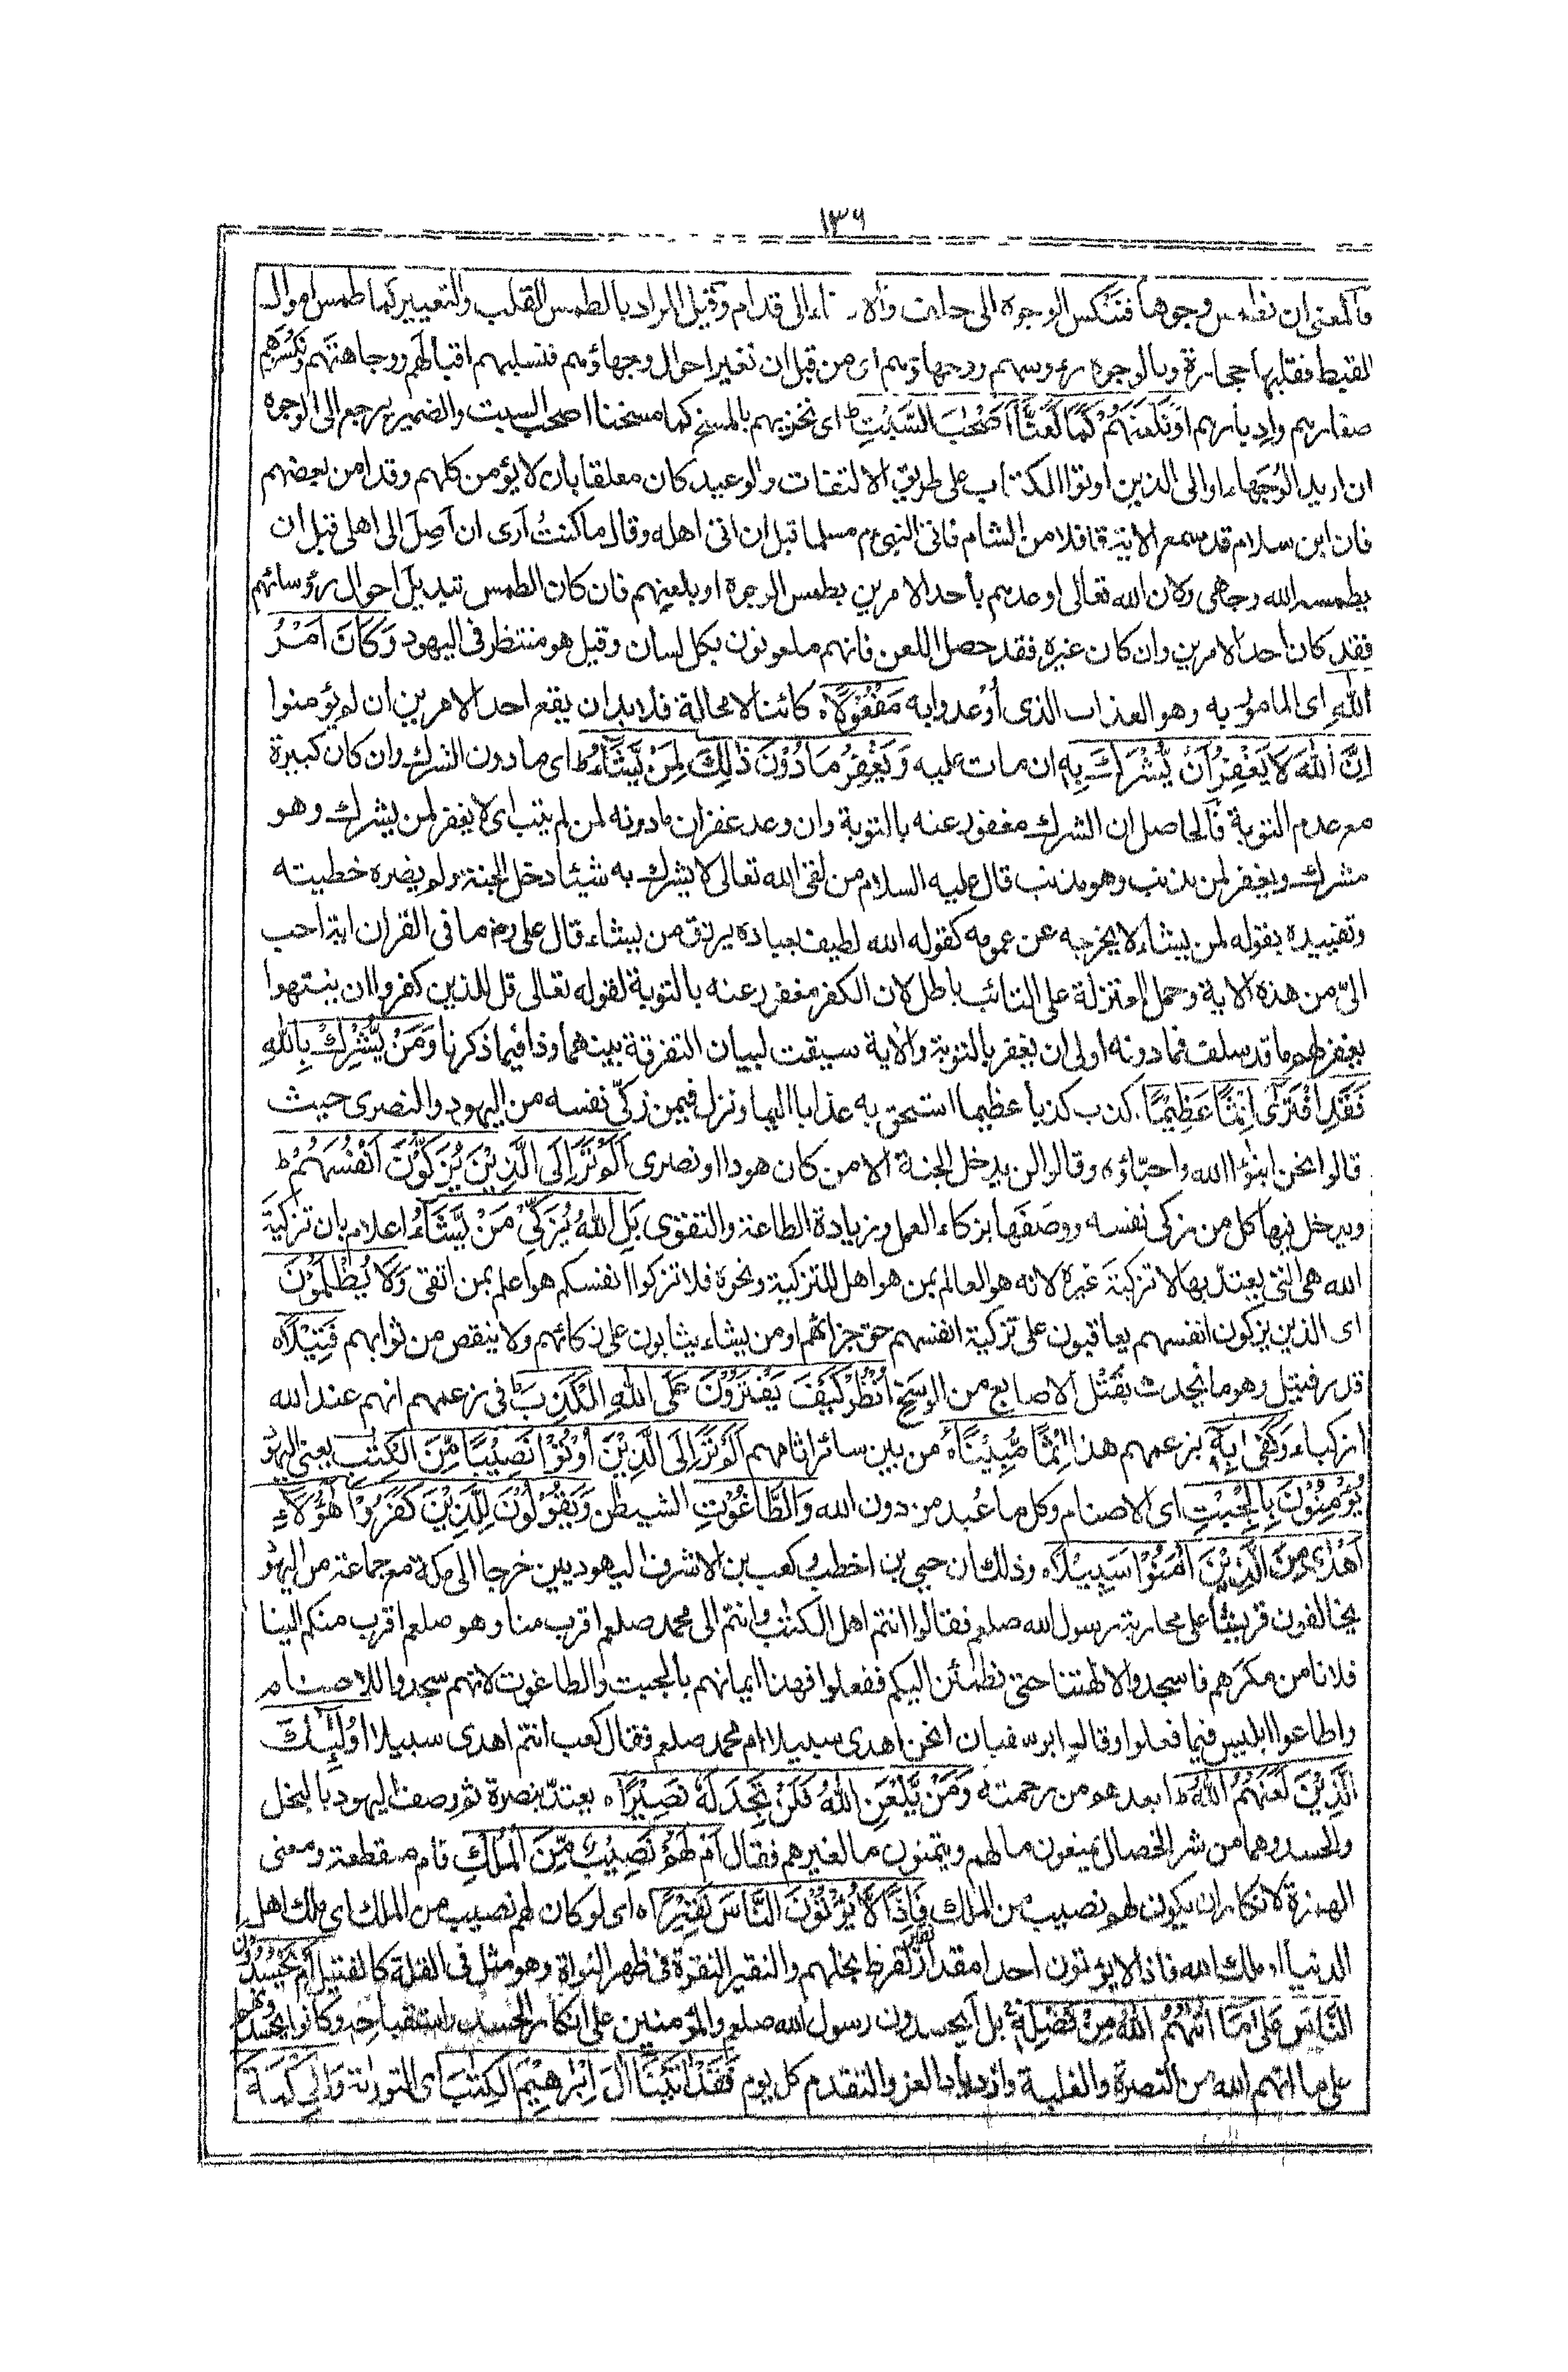 ١٣٦
فالمعنى ان نطمس وجوها فننكس الوجوه الى خلف والا الى قدام وقيل المراد بالطمس القلب والتغيير كما طمس اموال
القبط فقلبها حجارة وبالوجوه رءوسهم ووجهاؤهم اى من قبل ان نغير احوال وجهاؤهم فنسلبهم اقبالهم ووجاهتهم ونكسرهم
صغارهم وادبارهم اَوْ نَلْعَنَهُمْ كَمَا لَعَنَّا اَصْحٰبَ السَّبْتِ ط اى نخزيهم بالمسخ كما مسخنا اصحب السبت والضمير يرجع الى الوجوه
ان اريد الوُجَهاء او الى الذين اوتوا الكتاب على طريق الالتفات والوعيد كان معلقا بان لا يؤمن كلهم وقد امن بعضهم
فان ابن سلام قد سمع الاية قافلا من الشام فاتى النبى م مسلما قبل ان اتى اهله وقال ما كنتُ اَرى ان اَصِلَ الى اهلى قبل ان
يطمس الله وجهى ولان الله تعالى اوعدهم باحد الامرين بطمس الوجوه او بلعنهم فان كان الطمس تبديل احوال رؤسائهم
فقد كان احد الامرين وان كان غيره فقد حصل اللعن فانهم ملعونون بكل لسان وقيل هو منتظر فى اليهود وَكَانَ اَمْرُ
اللهِ اى المامور به وهو العذاب الذى اُوْعدوا به مَفْعُوْلًا ه كائنا لا محالة فلا بد ان يقع احد الامرين ان لم يؤمنوا
اِنَّ اللهَ لَا يَغْفِرُ اَنْ يُّشْرَكَ بِهٖ ان مات عليه وَيَغْفِرُ مَا دُوْنَ ذٰلِكَ لِمَنْ يَّشَآءُ ط اى ما دون الشرك وان كان كبيرة
مع عدم التوبة فالحاصل ان الشرك مغفور عنه بالتوبة وان وعد غفران ما دونه لمن لم يتب اى لا يغفر لمن يشرك وهو
مشرك ويغفر لمن يذنب وهو مذنب قال عليه السلام من لقى الله تعالى لا يشرك به شيئا دخل الجنة ولم يضره خطيته
وتقييده بقوله لمن يشاء لا يخرجه عن عمومه كقوله الله لطيف بعباده يرزق من يشاء قال على رض ما فى القران اية احب
الىّ من هذه الاية وحمل المعتزلة على التائب باطل لان الكفر مغفور عنه بالتوبة لقوله تعالى قل للذين كفروا ان ينتهوا
يغفر لهم ما قد سلف فما دونه اولى ان يغفر بالتوبة والاية سيقت لبيان التفرقة بينهما وذا فيما ذكرنا وَمَنْ يُّشْرِكْ بِاللهِ
فَقَدِ افْتَرٰٓى اِثْمًا عَظِيْمًا. كذب كذبا عظيما استحق به عذابا اليما ونزل فيمن زكّى نفسه من اليهود والنصرى حيث
قالوا نحن ابنؤا الله واحبّاؤه وقالوا لن يدخل الجنة الا من كان هودا او نصرى اَلَمْ تَرَ اِلَى الَّذِيْنَ يُزَكُّوْنَ اَنْفُسَهُمْ ط
ويدخل فيها كل من زكى نفسه ووصفها بزكاء العمل وزيادة الطاعة والتقوى بَلِ اللهُ يُزَكِّىْ مَنْ يَّشَآءُ اعلام بان تزكية
الله هى التى يعتد بها لا تزكية غيره لانه هو العالم بمن هو اهل للتزكية ونحوه فلا تزكوا انفسكم هو اعلم بمن اتقى وَلَا يُظْلَمُوْنَ
اى الذين يزكون انفسهم يعاقبون على تزكية انفسهم حق جزائهم او من يشاء يثابون على زكائهم ولا ينقص من ثوابهم فَتِيْلًا ه
قدر فتيل وهو ما يحدث بفَتْل الاصابع من الوسخ اُنْظُرْ كَيْفَ يَفْتَرُوْنَ عَلَى اللهِ الْكَذِبَ ط فى زعمهم انهم عند الله
ازكياء وَكَفٰى بِهٖٓ بزعمهم هذا اِثْمًا مُّبِيْنًا ه من بين سائر اثامهم اَلَمْ تَرَ اِلَى الَّذِيْنَ اُوْتُوْا نَصِيْبًا مِّنَ الْكِتٰبِ يعنى اليهو
يُؤْمِنُوْنَ بِالْجِبْتِ اى الاصنام وكل ما عُبد من دون الله وَالطَّاغُوْتِ الشيطن وَيَقُوْلُوْنَ لِلَّذِيْنَ كَفَرُوْا هٰٓؤُلَآءِ
اَهْدٰى مِنَ الَّذِيْنَ اٰمَنُوْا سَبِيْلًا ه وذلك ان حيى بن اخطب وكعب بن الاشرف اليهوديين خرجا الى مكة مع جماعة من اليهو
يحالفون قريشا على محاربة رسول الله صلعم فقالوا انتم اهل الكتب وانتم الى محمد صلعم اقرب منا وهو صلعم اقرب منكم الينا
فلا نامن مكرهم فاسجدوا لالهتنا حتى نطمئن اليكم ففعلوا فهذا ايمانهم بالجبت والطاغوت لانهم سجدوا للاصنام
واطاعوا ابليس فيما فعلوا وقال ابو سفيان انحن اهدى سبيلا ام محمد صلعم فقال كعب انتم اهدى سبيلا اُولٰٓئِكَ
الَّذِيْنَ لَعَنَهُمُ اللهُ ط ابعدهم من رحمته وَمَنْ يَّلْعَنِ اللهُ فَلَنْ تَجِدَ لَهٗ نَصِيْرًا ه يعتدّ بنصرة ثم وصف اليهود بالبخل
والحسد وهما من شر الخصال يمنعون ما لهم ويتمنون ما لغيرهم فقال اَمْ لَهُمْ نَصِيْبٌ مِّنَ الْمُلْكِ فام منقطعة ومعنى
الهمزة لانكار ان يكون لهم نصيب من الملك فَاِذًا لَّا يُؤْتُوْنَ النَّاسَ نَقِيْرًا ه اى لو كان لهم نصيب من الملك اى ملك اهل
الدنيا او ملك الله فاذا لا يؤتون احدا مقدار نقير لفرط بخلهم والنقير النقرة فى ظهر النواة وهو مثل فى القلة كالفتيل اَمْ يَحْسُدُوْنَ
النَّاسَ عَلٰى مَآ اٰتٰهُمُ اللهُ مِنْ فَضْلِهٖ بل أيحسدون رسول الله صلعم والمؤمنين على انكار الحسد واستقباحه وكانوا يحسدونهم
على ما اتهم الله من النصرة والغلبة وازدياد العز والتقدم كل يوم فَقَدْ اٰتَيْنَآ اٰلَ اِبْرٰهِيْمَ الْكِتٰبَ اى التورٰىة وَالْحِكْمَةَ